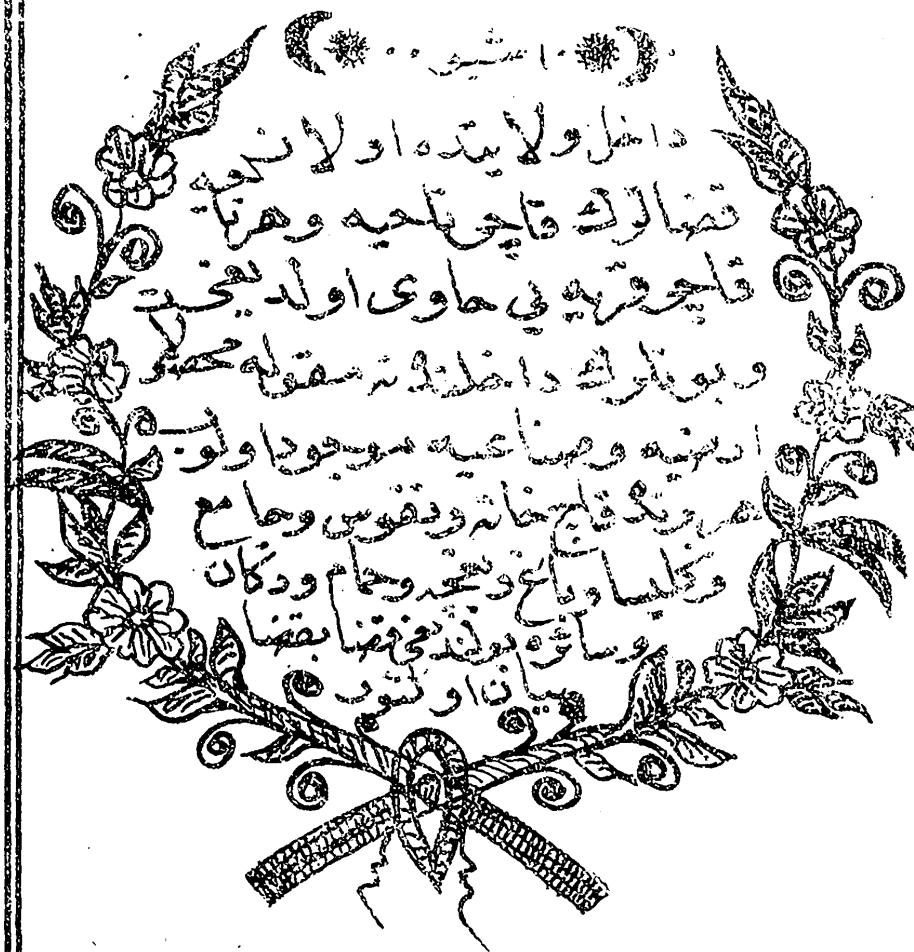 اشبو
داخل ولايتده اولان
قضالرك قاچر ناحيه وهر ناحيه
قاچر قريه يي حاوى اولديغى
وبونلرك داخلنده نه مقوله محصولات
ارضيه وصناعيه موجود اولوب
هر برنده قاچ خانه ونفوس وجامع
وكليسا وباغ وبغچه وحمام ودكان
وسائره بولنديغى قضا بقضا
بيان اولنور